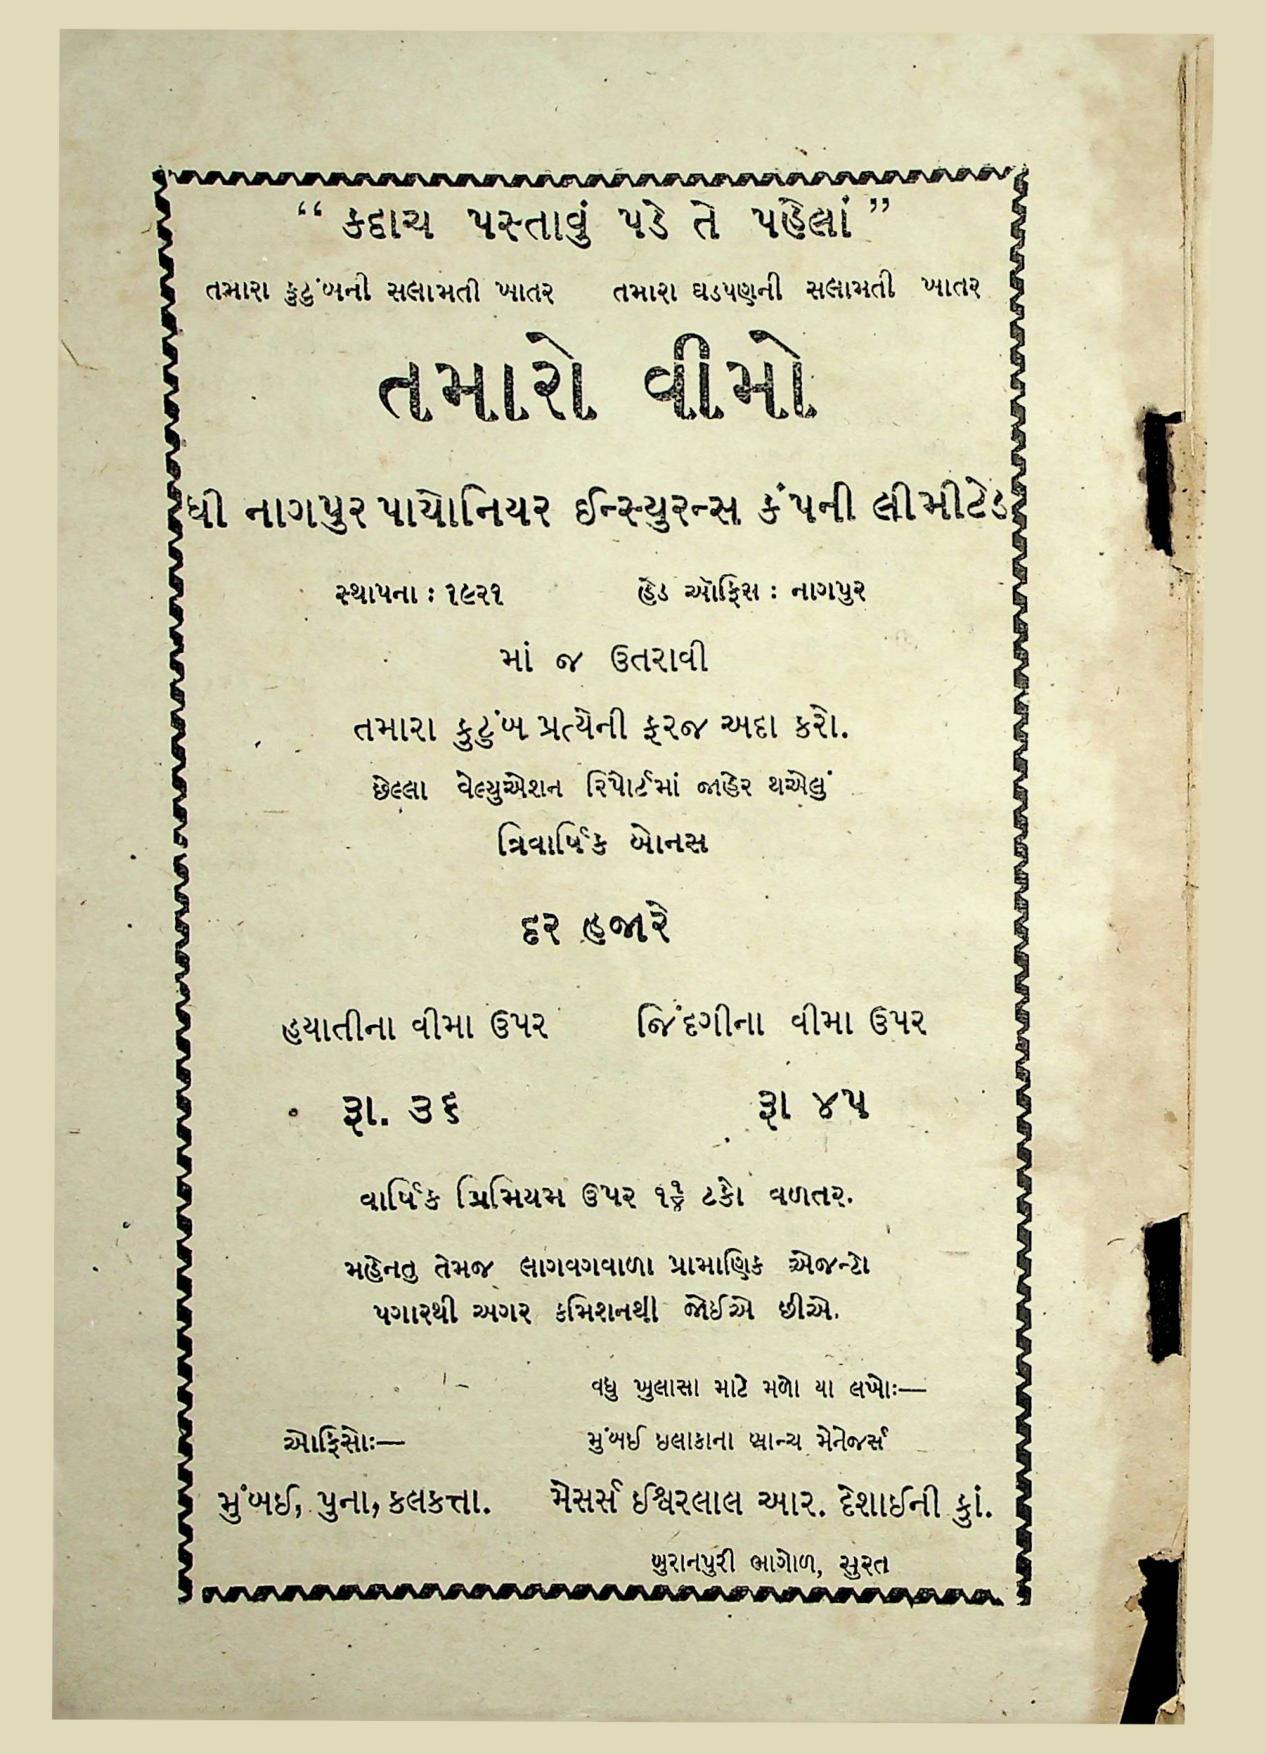 “ કદાચ પસ્તાવું પડે તે પહેલાં ”
તમારા કુટુંબની સલામતી ખાતર તમારા ઘડપણની સલામતી ખાતર
તમારો વીમો
ધી નાગપુર પાયોનિયર ઈન્સ્યુરન્સ કંપની લીમીટેડ
સ્થાપના : ૧૯૨૧ હેડ ઑફિસ : નાગપુર
માં જ ઉતરાવી
તમારા કુટુંબ પ્રત્યેની ફરજ અદા કરો.
છેલ્લા વેલ્યુએશન રિપોર્ટમાં જાહેર થએલું
ત્રિવાર્ષિક બોનસ
દર હજારે
હયાતીના વીમા ઉપર જિંદગીના વીમા ઉપર
રૂા. ૩૬ રૂા ૪૫
વાર્ષિક પ્રિમિયમ ઉપર ટકો વળતર.
મહેનતુ તેમજ લાગવગવાળા પ્રામાણિક એજન્ટો
પગારથી અગર કમિશનથી જોઈએ છીએ.
વધુ ખુલાસા માટે મળો યા લખોઃ—
ઓફિસોઃ— મુંબઈ ઇલાકાના બ્રાન્ચ મેનેજર્સ
મુંબઈ, પુના, કલકત્તા. મેસર્સ ઈશ્વરલાલ આર. દેશાઈની કુાં.
બુરાનપુરી ભાગોળ, સુરત